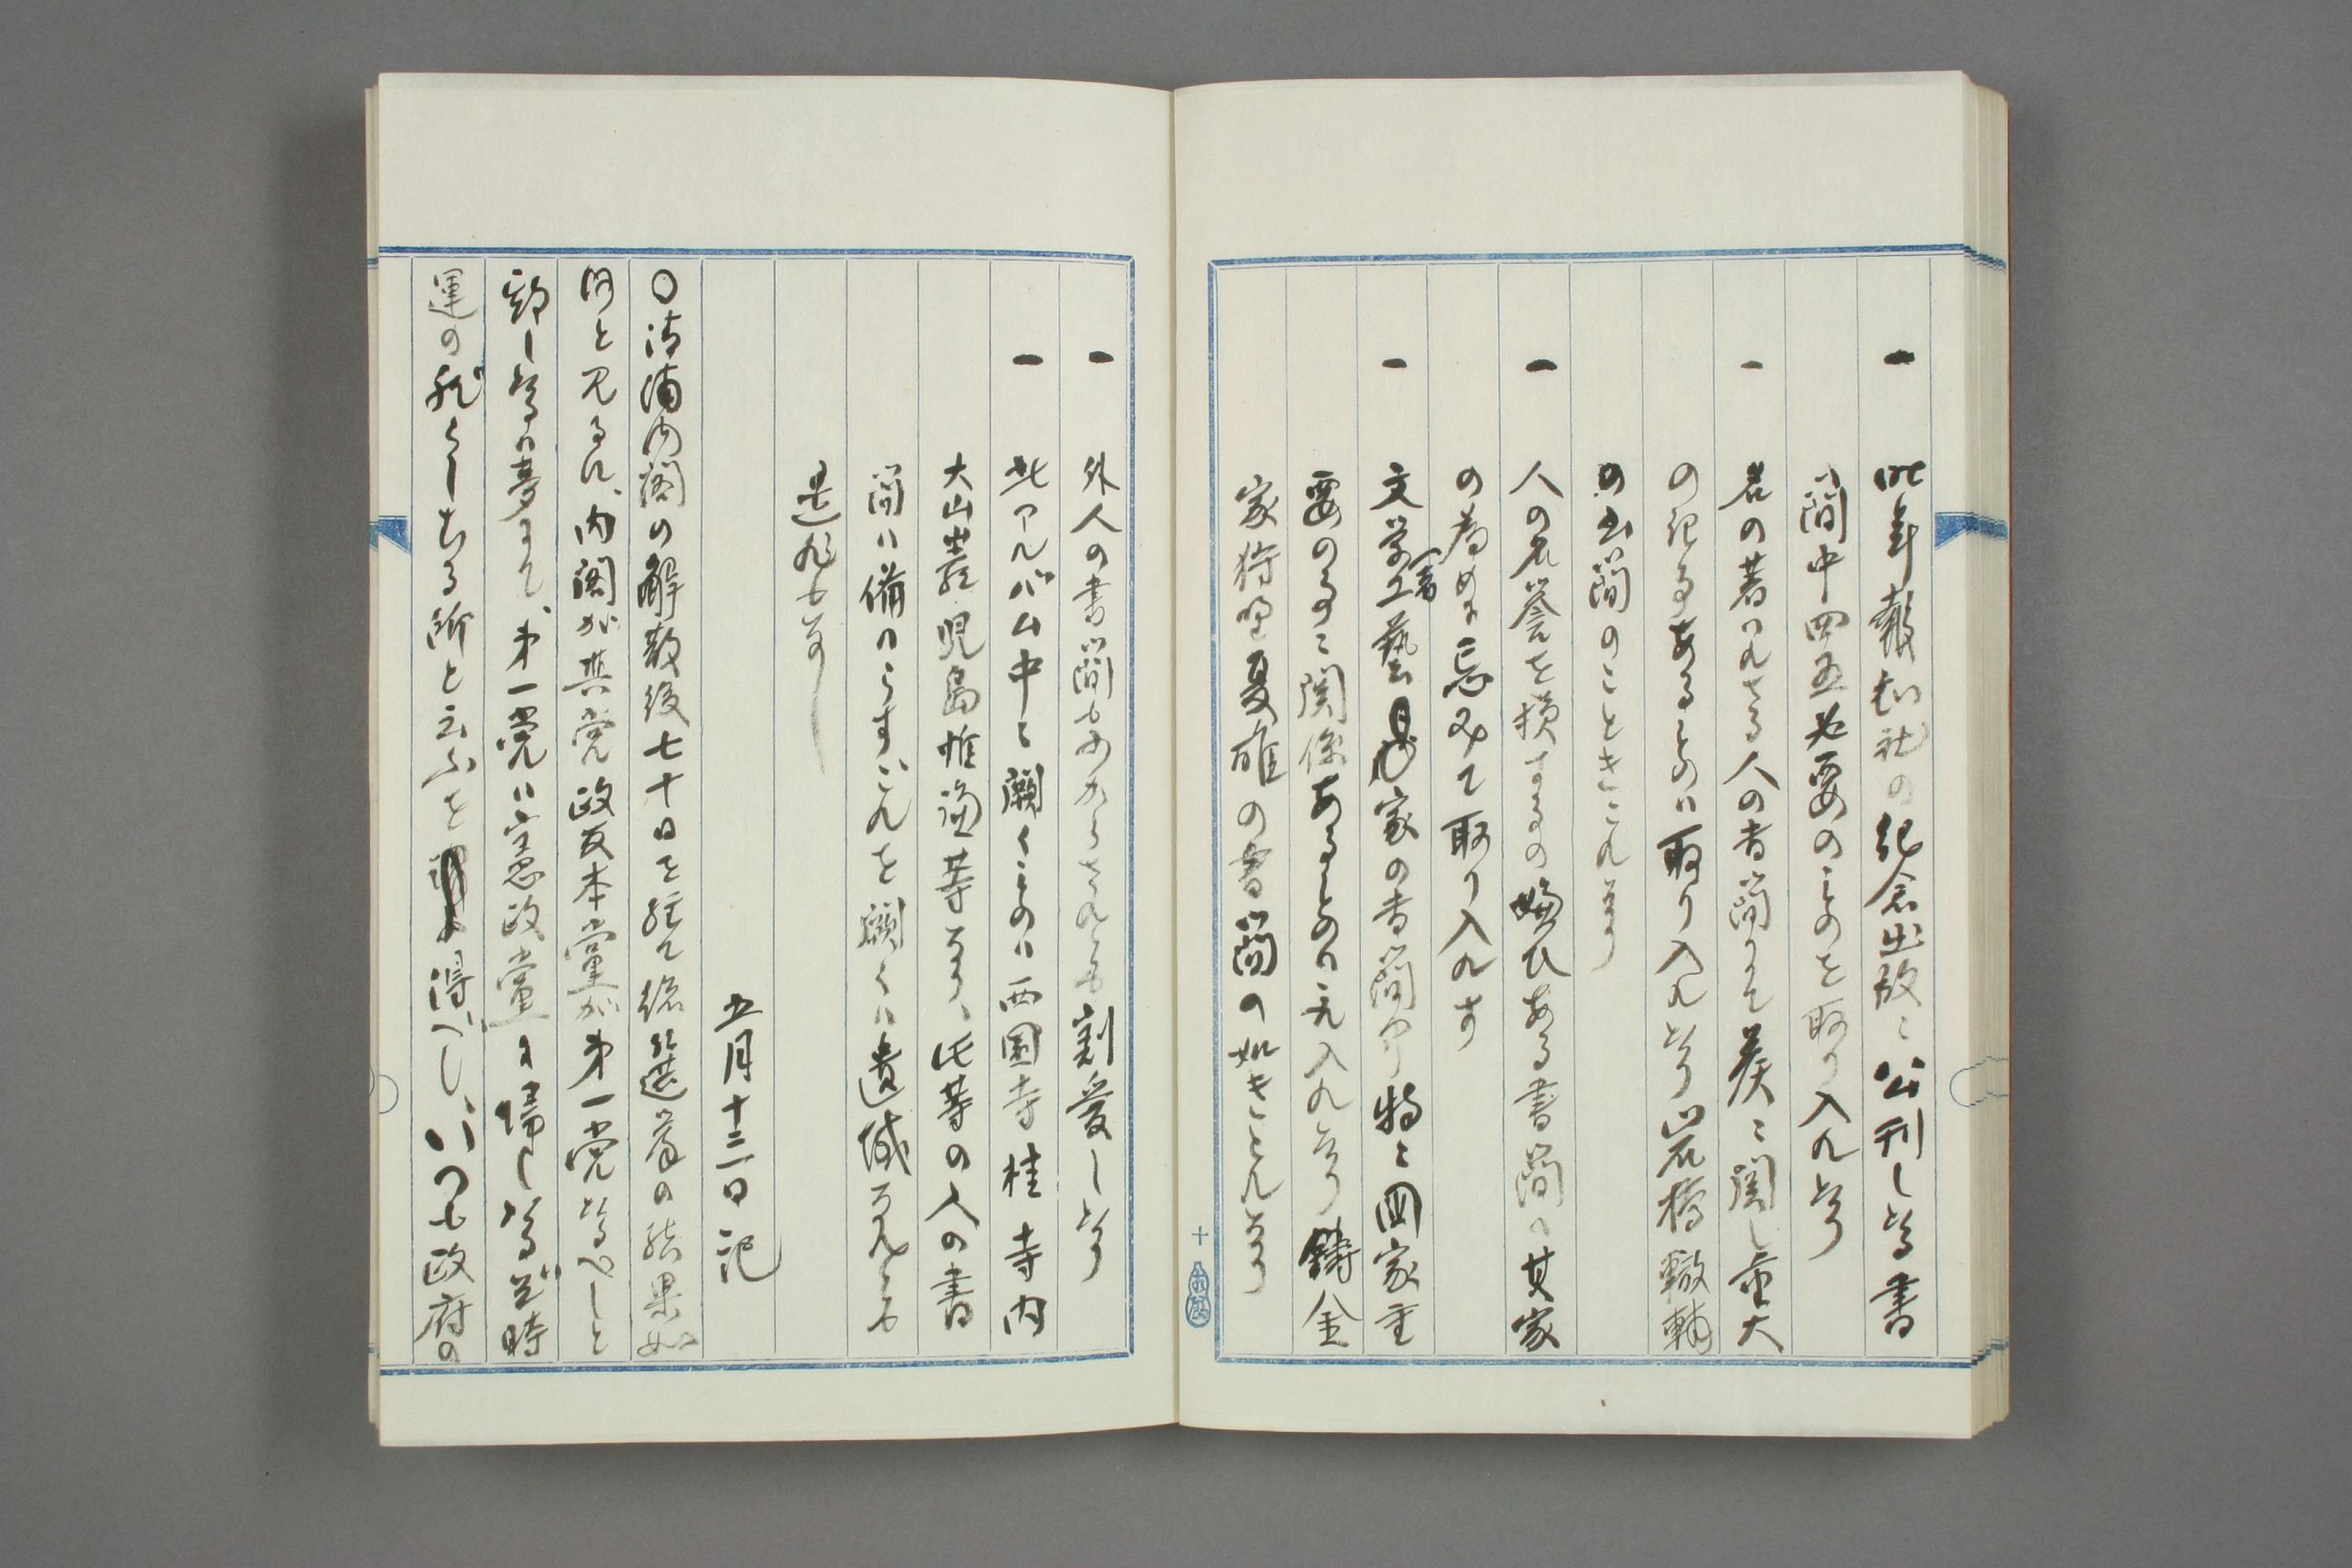 一 昨年報知社の紀念出版ニ公刊し[た]る書
簡中四五必要のものを取り入れたり
一 名の著はれさる人の書簡にて美ニ関し重大
の記事あるものハ取り入れたり岩橋轍輔
の書簡のことき これなり
一 人の名誉を損するの嫌ひある書簡ハ其家
の為めに忌みて取り入れす
一 文学（書）工藝家の書簡中特ニ国家重
要の事ニ関係あるものハ之れ入れたり鋳金
家狩野夏雄の書簡の如きこれなり
一 外人の書簡も少からされとも割愛したり
一 此アルバム中ニ闕くものハ西園寺桂寺内
大山巌児島惟謙等なり、此等の人の書
簡ハ備ハらす、これを闕くハ遺憾なれとも
是非もなし
五月十三日記
〇清浦内閣の解散後七十日を経て總選挙の結果如
何と見るに、内閣が其党政友本党が第一党たるべしと
期したるハ夢にて、第一党ハ宝憲政党に帰したるぞ時
運の然らしむる所と云ふを得べし、いつも政府の